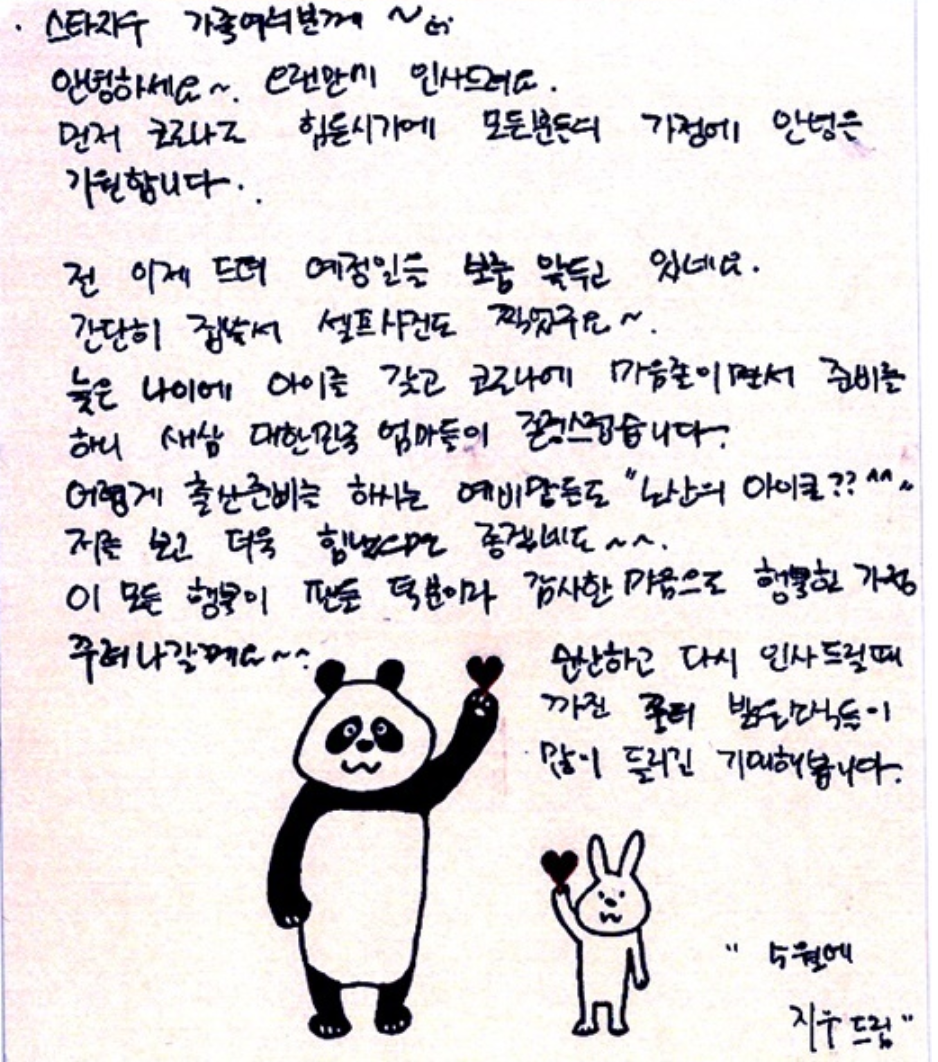 스타지우 가족여러분께 ~
안녕하세요~. 오랜만에 인사드려요.
먼저 코로나로 힘든시기에 모든분들의 가정에 안녕을
기원합니다.
전 이제 드뎌 예정일을 보름 앞두고 있네요.
간단히 집앞서 셀프사진도 찍었구요~.
늦은 나이에 아이를 갖고 코로나에 마음졸이면서 준비를
하니 새삼 대한민국 엄마들이 존경스럽습니다.
어렵게 출산준비를 하시는 예비맘들도 "노산의 아이콘?? ^^~
저를 보고 더욱 힘냈으면 좋겠네요~~.
이 모든 행복이 팬들 덕분이라 감사한 마음으로 행복한 가정
꾸려나갈께요~~
순산하고 다시 인사드릴때
까진 좀더 밝은소식들이
많이 들리길 기대해봅니다.
" 5월에
지우 드림"